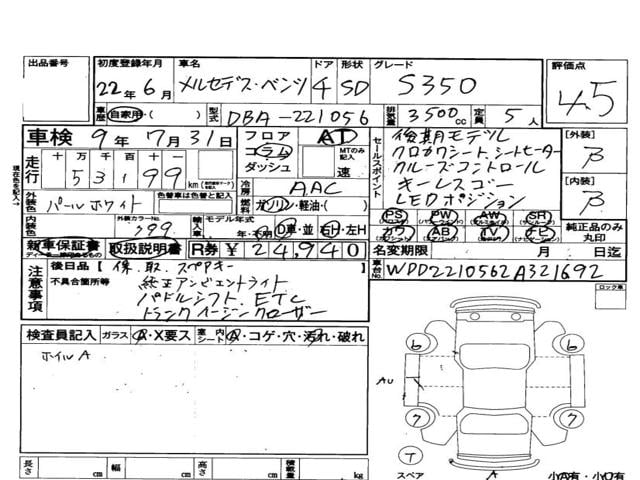 出品番号 初度登録年月 車名 ドア 形状 グレード 評価点
22年6月 メルセデス・ベンツ 4 SD S350 4.5
車歴 自家用・( ) 型式 DBA-221056 排気量 3500cc 定員 5人
車検 9年7月31日 フロア AT
コラム MTのみ記入
ダッシュ 速
走行 十万千百十一
53199km
冷房 AAC
外装色 パールホワイト 色替車は色替と記入 燃料 ガソリン・軽油・( )
内装色 外装カラーNo. 799 輸入車 モデル年式 年・不明 D車・並 右H・左H
新車保証書 取扱説明書 R券 ¥24,940
セールスポイント
後期モデル
クロカワシート、シートヒーター
クルーズコントロール
キーレスゴー
LEDポジション
PS PW AW SR
カワ AB TV
[外装] B
[内装] B
純正品のみ丸印
名変期限 月 日迄
車台No. WDD2210562A321692
注意事項
後日品 [保、取、スペアキー
不具合箇所等 純正アンビエントライト
パドルシフト、ETC
トランクイージークローザー
ロック車
検査員記入 ガラス・A・X要ス 室内シート A・コゲ・穴・汚れ・破れ
ホイルA
6 6
AU
7 7
T
スペア A 小A有・小U有
長さ cm 幅 cm 高さ cm 積載量 kg
現在色を記入